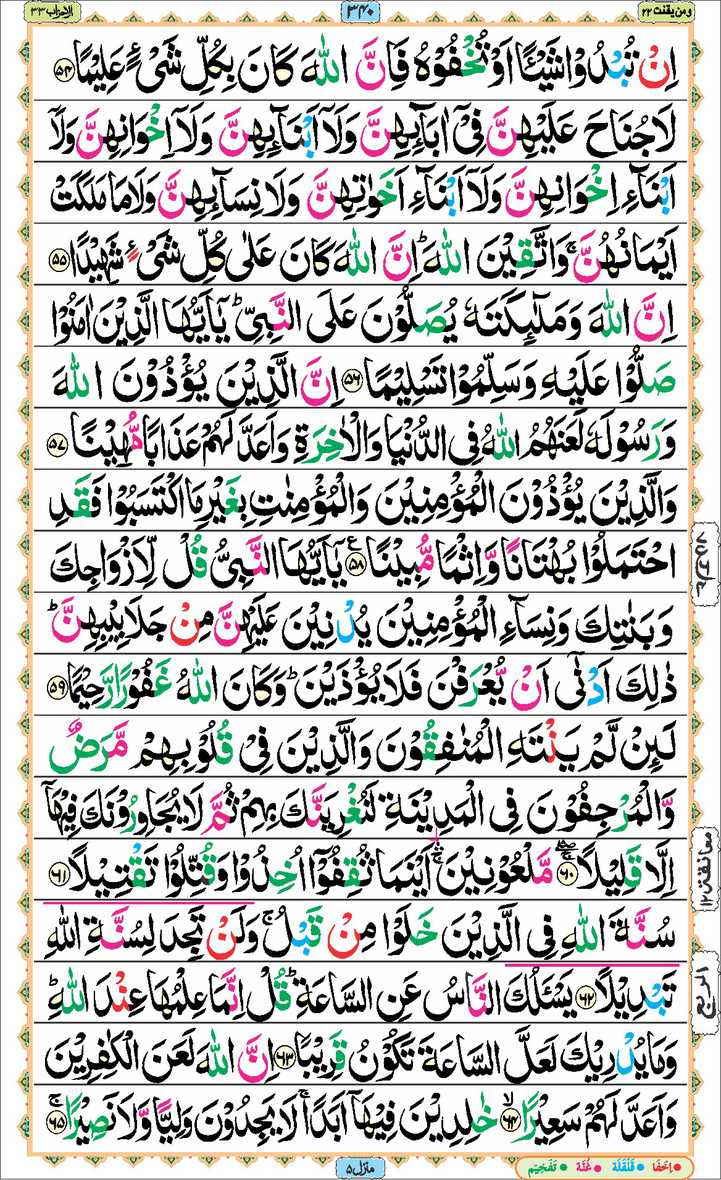 ومن يقنت ٢٢
٣٤٠
الاحزاب ٣٣
اِنْ تُبْدُوْا شَيْـًٔا اَوْ تُخْفُوْهُ فَاِنَّ اللّٰهَ كَانَ بِكُلِّ شَیْءٍ عَلِيْمًا ۝۵۴
لَا جُنَاحَ عَلَيْهِنَّ فِیْۤ اٰبَآىِٕهِنَّ وَلَاۤ اَبْنَآىِٕهِنَّ وَلَاۤ اِخْوَانِهِنَّ وَلَاۤ
اَبْنَآءِ اِخْوَانِهِنَّ وَلَاۤ اَبْنَآءِ اَخَوٰتِهِنَّ وَلَا نِسَآىِٕهِنَّ وَلَا مَا مَلَكَتْ
اَيْمَانُهُنَّ ۚ وَاتَّقِيْنَ اللّٰهَ ؕ اِنَّ اللّٰهَ كَانَ عَلٰی كُلِّ شَیْءٍ شَهِيْدًا ۝۵۵
اِنَّ اللّٰهَ وَمَلٰٓىِٕكَتَهٗ يُصَلُّوْنَ عَلَی النَّبِیِّ ؕ يٰۤاَيُّهَا الَّذِيْنَ اٰمَنُوْا
صَلُّوْا عَلَيْهِ وَسَلِّمُوْا تَسْلِيْمًا ۝۵۶ اِنَّ الَّذِيْنَ يُؤْذُوْنَ اللّٰهَ
وَرَسُوْلَهٗ لَعَنَهُمُ اللّٰهُ فِی الدُّنْيَا وَالْاٰخِرَةِ وَاَعَدَّ لَهُمْ عَذَابًا مُّهِيْنًا ۝۵۷
وَالَّذِيْنَ يُؤْذُوْنَ الْمُؤْمِنِيْنَ وَالْمُؤْمِنٰتِ بِغَيْرِ مَا اكْتَسَبُوْا فَقَدِ
احْتَمَلُوْا بُهْتَانًا وَّاِثْمًا مُّبِيْنًا ۝۵۸ ع يٰۤاَيُّهَا النَّبِیُّ قُلْ لِّاَزْوَاجِكَ
وَبَنٰتِكَ وَنِسَآءِ الْمُؤْمِنِيْنَ يُدْنِيْنَ عَلَيْهِنَّ مِنْ جَلَابِيْبِهِنَّ ؕ
ذٰلِكَ اَدْنٰۤی اَنْ يُّعْرَفْنَ فَلَا يُؤْذَيْنَ ؕ وَكَانَ اللّٰهُ غَفُوْرًا رَّحِيْمًا ۝۵۹
لَىِٕنْ لَّمْ يَنْتَهِ الْمُنٰفِقُوْنَ وَالَّذِيْنَ فِیْ قُلُوْبِهِمْ مَّرَضٌ
وَّالْمُرْجِفُوْنَ فِی الْمَدِيْنَةِ لَنُغْرِيَنَّكَ بِهِمْ ثُمَّ لَا يُجَاوِرُوْنَكَ فِيْهَاۤ
اِلَّا قَلِيْلًا ۝۶۰ مَّلْعُوْنِيْنَ ۛۚ اَيْنَمَا ثُقِفُوْۤا اُخِذُوْا وَقُتِّلُوْا تَقْتِيْلًا ۝۶۱
معانقة ١٢
سُنَّةَ اللّٰهِ فِی الَّذِيْنَ خَلَوْا مِنْ قَبْلُ ۚ وَلَنْ تَجِدَ لِسُنَّةِ اللّٰهِ
تَبْدِيْلًا ۝۶۲ يَسْـَٔلُكَ النَّاسُ عَنِ السَّاعَةِ ؕ قُلْ اِنَّمَا عِلْمُهَا عِنْدَ اللّٰهِ ؕ
الربع
وَمَا يُدْرِيْكَ لَعَلَّ السَّاعَةَ تَكُوْنُ قَرِيْبًا ۝۶۳ اِنَّ اللّٰهَ لَعَنَ الْكٰفِرِيْنَ
وَاَعَدَّ لَهُمْ سَعِيْرًا ۝۶۴ۙ خٰلِدِيْنَ فِيْهَاۤ اَبَدًا ۚ لَا يَجِدُوْنَ وَلِيًّا وَّلَا نَصِيْرًا ۝۶۵ۚ
منزل ۵
اِخفَا • قَلْقَلَة • غُنَّة • تَفْخِيْم